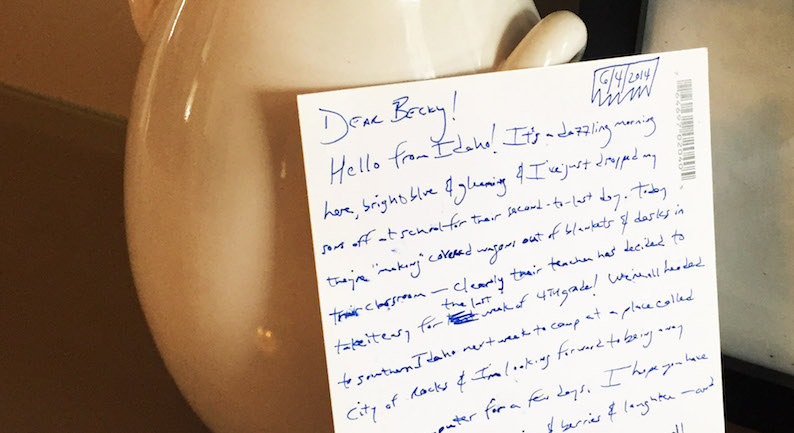 6/4/2014
DEAR BECKY!
Hello from Idaho! It's a dazzling morning
here, bright & blue & gleaming & I've just dropped my
sons off at school for their second-to-last day. Today
they're "making" covered wagons out of blankets & desks in
their classroom — clearly their teacher has decided to
take it easy for the last week of 4th grade! We're all headed
to southern Idaho next week to camp at a place called
City of Rocks & I'm looking forward to being away
computer for a few days. I hope you have
& berries & laughter — and
all